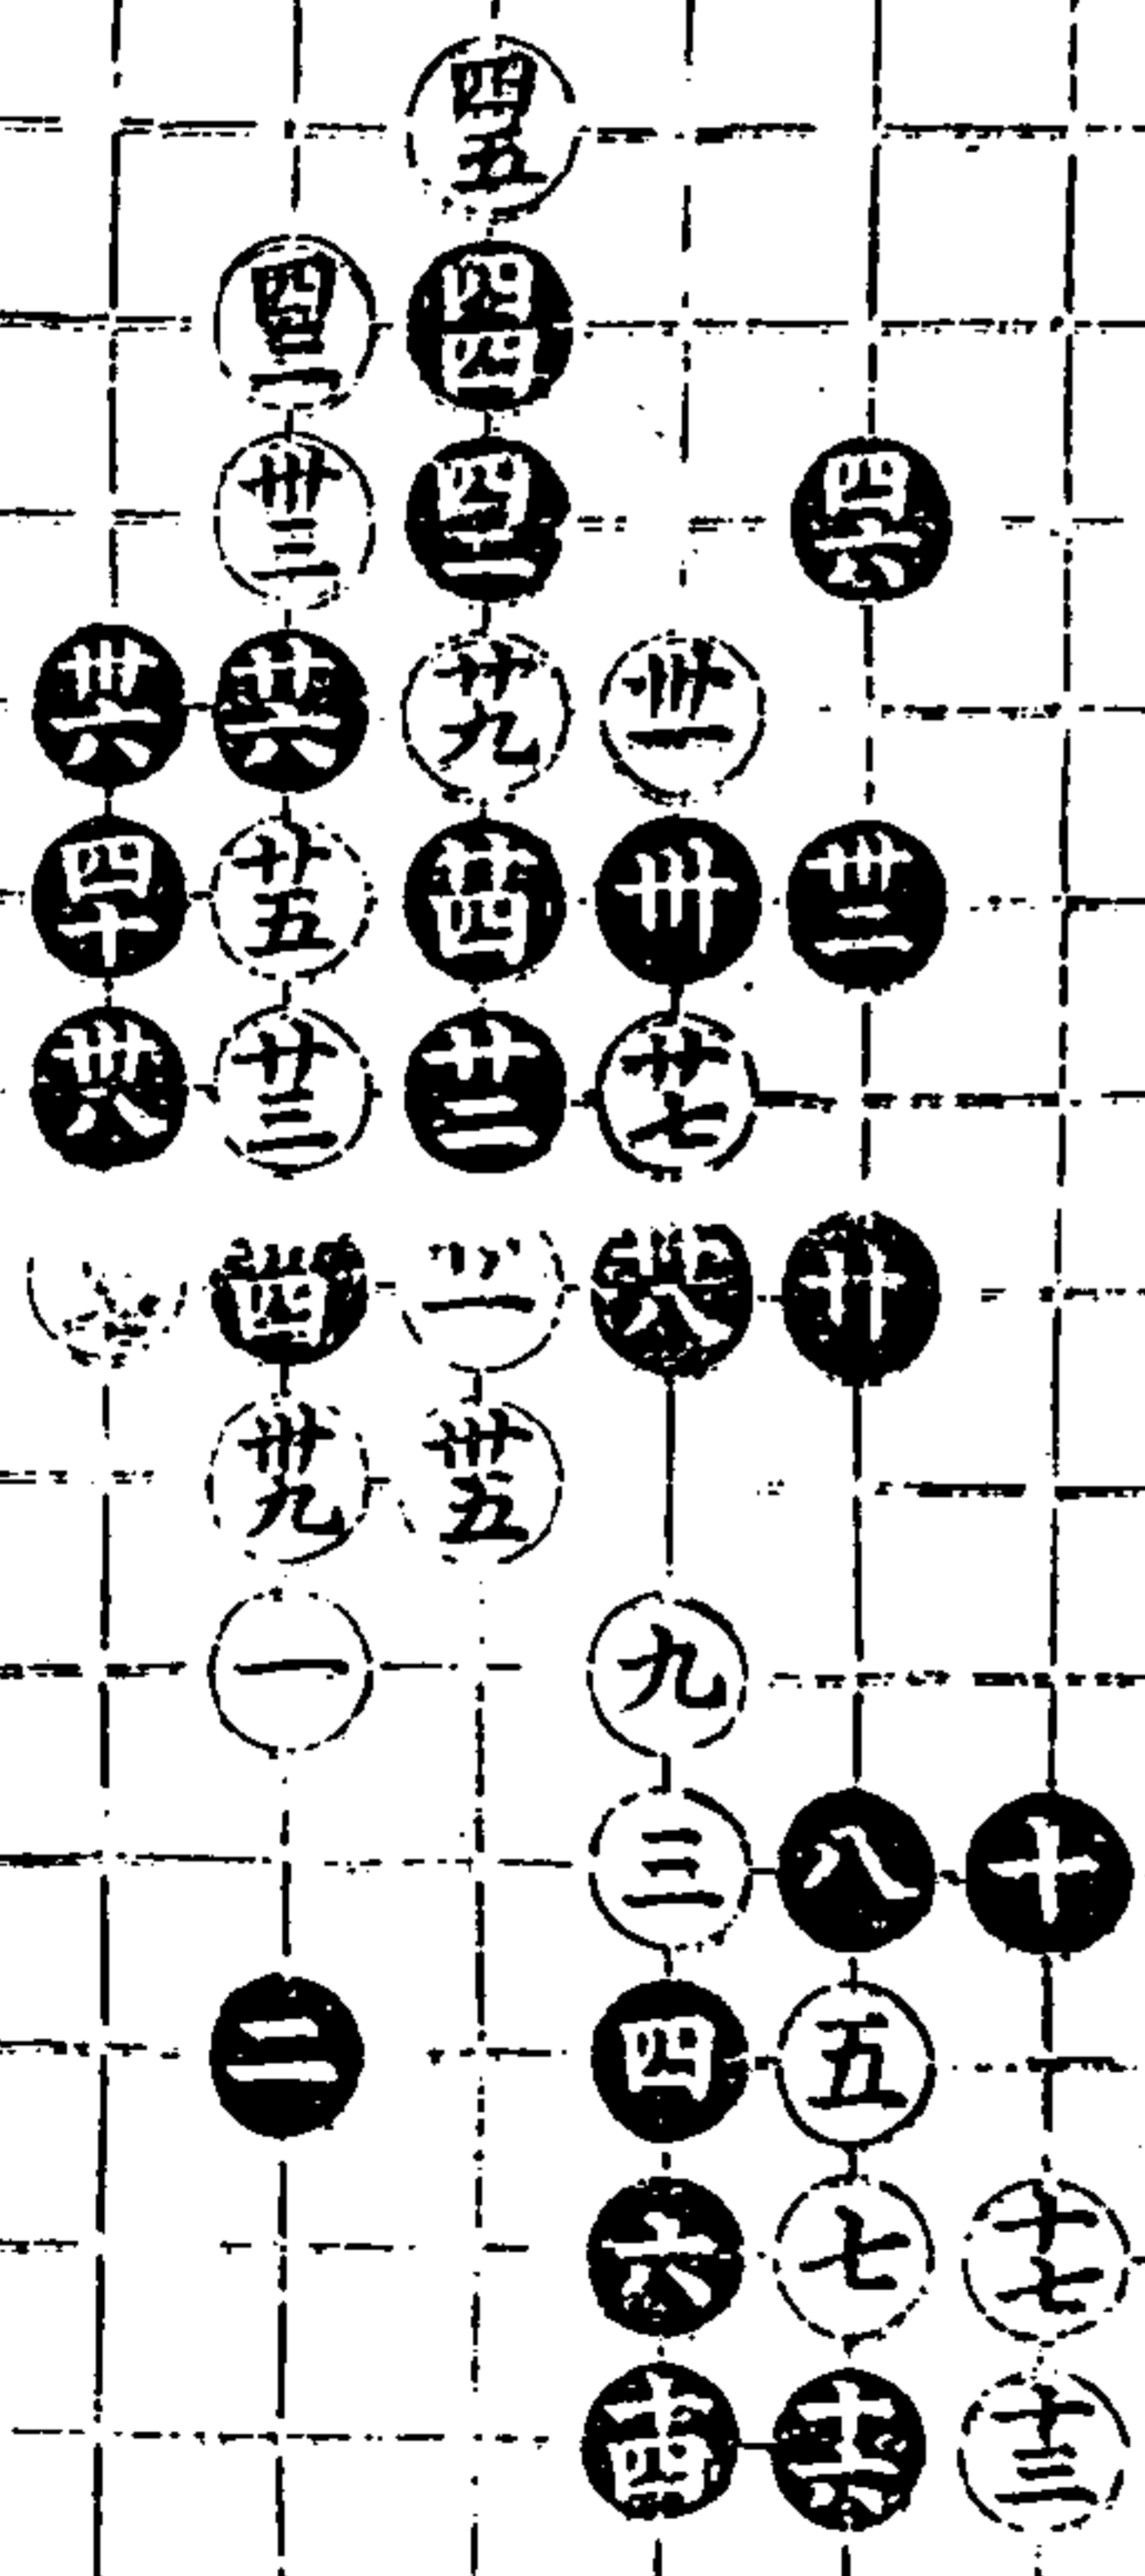 四五
四三 四四
卅三 四二 四六
卅六 廿六 廿九 卅一
四十 廿五 廿四 卅 卅二
卅八 廿三 廿二 廿七
卅四 廿八 廿
卅九 卅五
一 九
三 八 十
二 四 五
六 七 十七
十四 十六 十三